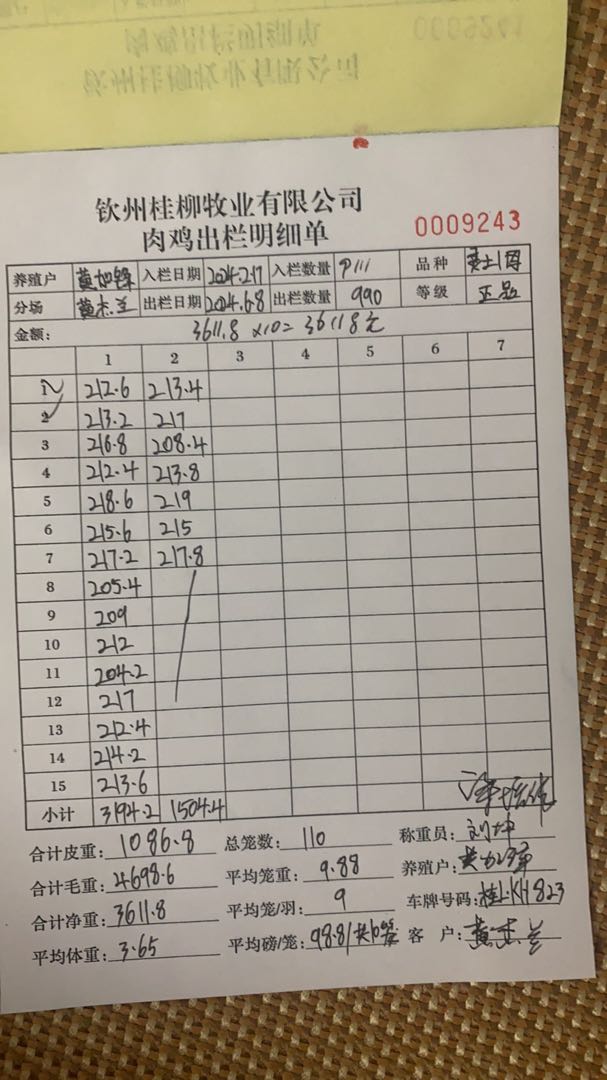 钦州桂柳牧业有限公司
肉鸡出栏明细单
0009243
养殖户 黄如锋 入栏日期 2024.2.17 入栏数量 品种
分场 黄杰兰 出栏日期 2024.6.8 出栏数量 990 等级 正品
金额: 3611.8 x10= 36118元
1 2 3 4 5 6 7
1 212.6 213.4
2 213.2 217
3 216.8 208.4
4 212.4 213.8
5 218.6 219
6 215.6 215
7 217.2 217.8
8 205.4
9 209
10 212
11 204.2
12 217
13 212.4
14 214.2
15 213.6
小计 3194.2 1504.4
合计皮重: 1086.8 总笼数: 110 称重员: 刘坤
合计毛重: 4698.6 平均笼重: 9.88 养殖户: 黄如锋
合计净重: 3611.8 平均笼/羽: 9 车牌号码: 桂LKH823
平均体重: 3.65 平均磅/笼: 98.8/共10笼 客 户: 黄杰兰